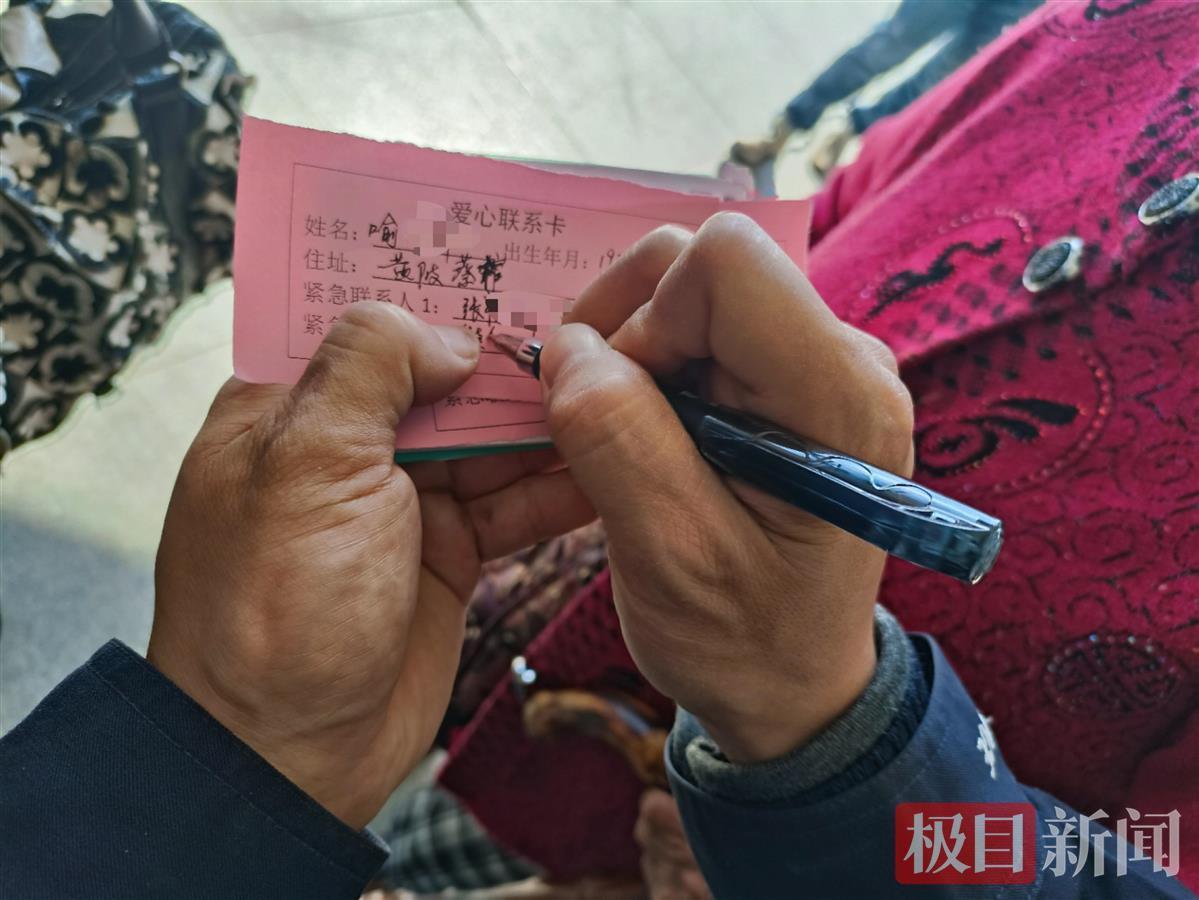 爱心联系卡
姓名：喻 出生年月：19
住址：黄陂蔡榨
紧急联系人1：张
紧急
紧急
极目新闻